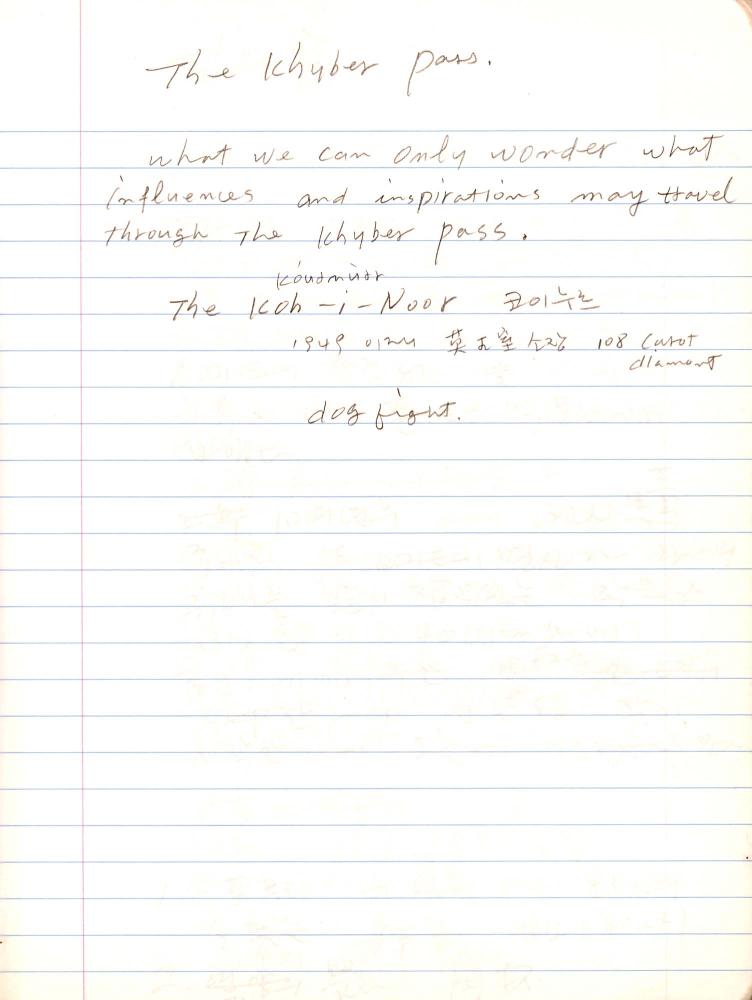 The Khyber pass.
what we can only wonder what
influences and inspirations may travel
through The Khyber pass.
The Koh-i-Noor 코이누르
1949 이래 英王室 소장 108 Carot
diamont
dog fight.